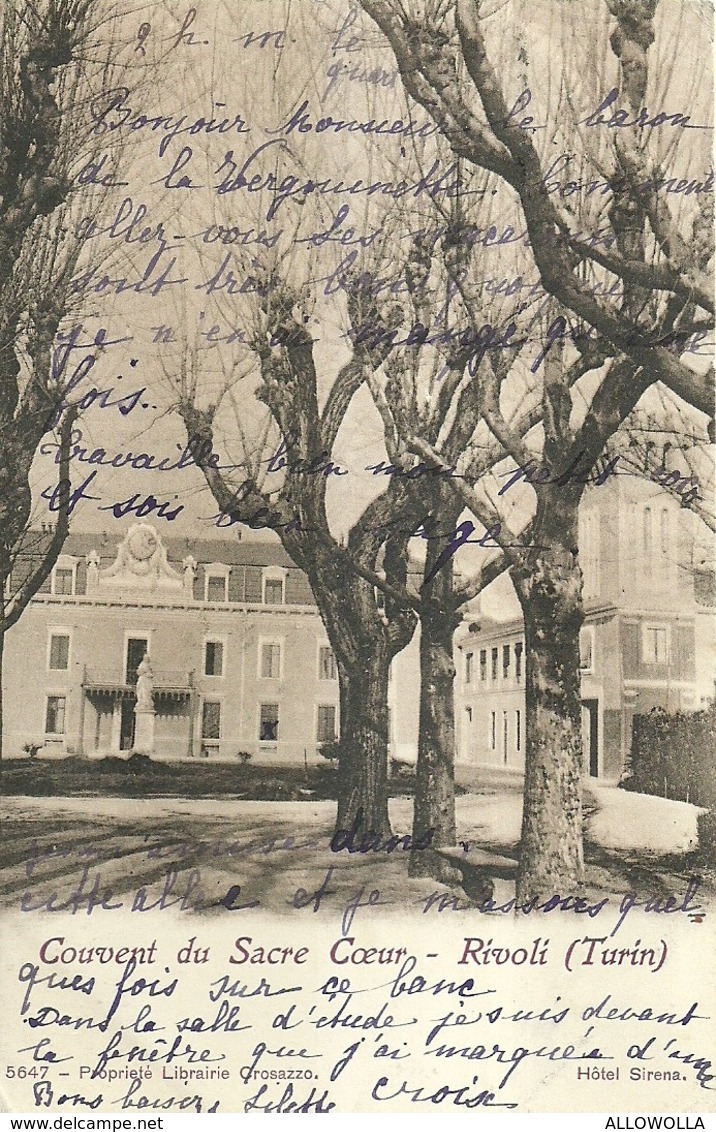 2 h. m. le
quart
Bonjour Monsieur le baron
de la Vergouinette. Comment
allez-vous Les macarons
sont très bons quoique
je n'en ai mangé qu'une
fois..
Travaille bien mon petit coco
et sois bien sage.
je m'amuse dans
cette allée et je m'assois quel
Couvent du Sacre Cœur - Rivoli (Turin)
ques fois sur ce banc
Dans la salle d'étude je suis devant
la fenêtre que j'ai marquée d'une
5647 - Proprieté Librairie Grosazzo. croix Hôtel Sirena.
Bons baisers Lilette
ALLOWOLLA